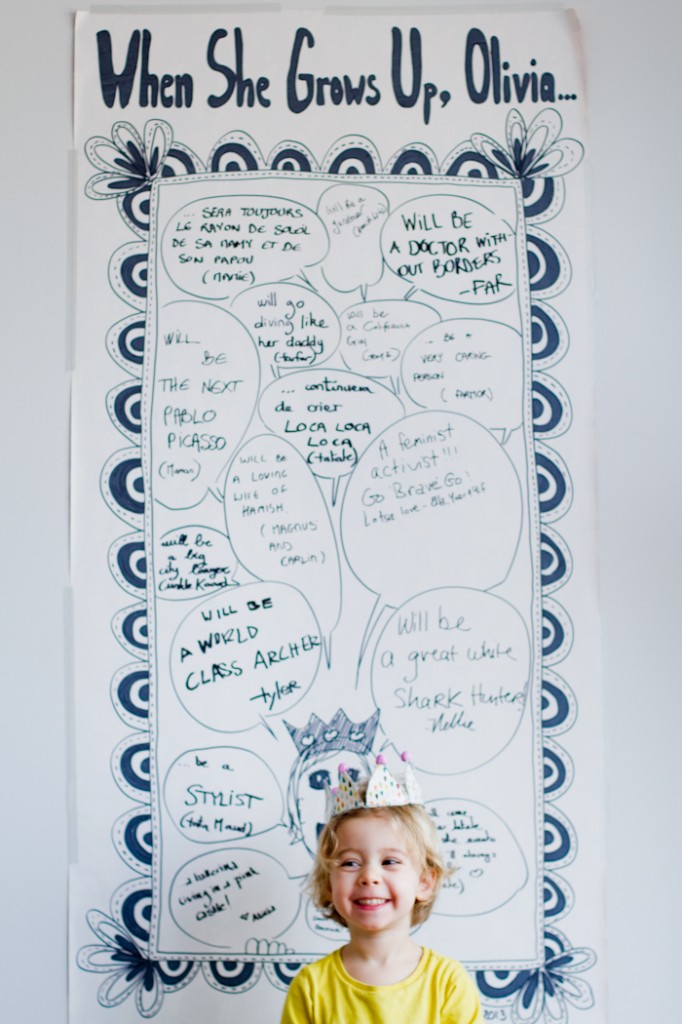 When She Grows Up, Olivia...
... SERA TOUJOURS
LE RAYON DE SOLEIL
DE SA MAMY ET DE
SON PAPOU
(MAMIE)
will be a
WILL BE
A DOCTOR WITH-
OUT BORDERS
-FAR
will go
diving like
her daddy
(farfar)
will be
a California
Girl
... BE A
VERY CARING
PERSON
(FARMOR)
WILL
BE
THE NEXT
PABLO
PICASSO
(Maman)
... continuera
de crier
LOCA LOCA
LOCA
(tatate)
A feminist
activist!!!
Go Brave Go!
Lotsa love -
WILL BE
A LOVING
WIFE OF
HAMISH.
(MAGNUS
AND
CARLIN)
will be
a big
city
WILL BE
A WORLD
CLASS ARCHER
-tyler
Will be
a great white
Shark Hunter!
-Nellie
... be a
STYLIST
(tata Maud)
a
living in a pink
castle!
2013